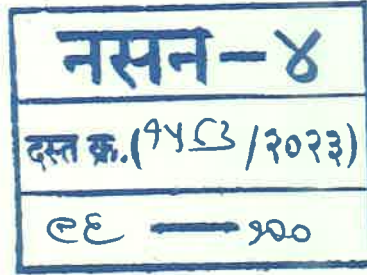 नसन-४
दस्त क्र.(१५८३/२०२३)
९६ — १००